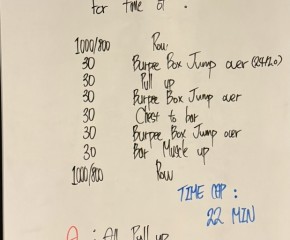 for time of :
1000/800 Row
30 Burpee Box Jump over (24/20)
30 Pull up
30 Burpee Box Jump over
30 Chest to bar
30 Burpee Box Jump over
30 Bar Muscle up
1000/800 Row
TIME CAP :
22 MIN
: All Pull up